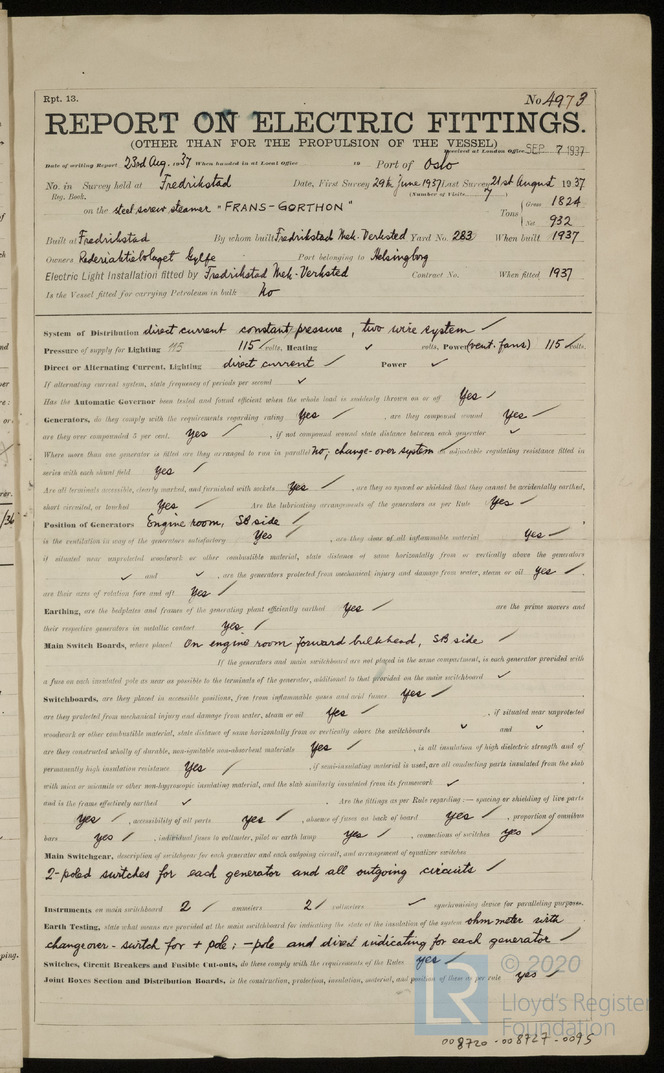 Rpt. 13.
No 4973
REPORT ON ELECTRIC FITTINGS.
(OTHER THAN FOR THE PROPULSION OF THE VESSEL)
Received at London Office SEP 7 1937
Date of writing Report 23rd Aug. 1937 When handed in at Local Office 19 Port of Oslo
No. in Survey held at Fredrikstad Date, First Survey 29th June 1937 Last Survey 21st August 1937
Reg. Book. (Number of Visits 7)
on the steel screw steamer "FRANS-GORTHON" Tons { Gross 1824
Net 932
Built at Fredrikstad By whom built Fredrikstad Mek. Verksted Yard No. 283 When built 1937
Owners Rederiaktiebolaget Gylfe Port belonging to Helsingborg
Electric Light Installation fitted by Fredrikstad Mek. Verksted Contract No. When fitted 1937
Is the Vessel fitted for carrying Petroleum in bulk No
System of Distribution direct current constant pressure, two wire system ✓
Pressure of supply for Lighting 115 115 volts, Heating ✓ volts, Power (vent. fans) 115 volts.
Direct or Alternating Current, Lighting direct current ✓ Power ✓
If alternating current system, state frequency of periods per second ✓
Has the Automatic Governor been tested and found efficient when the whole load is suddenly thrown on or off Yes
Generators, do they comply with the requirements regarding rating Yes , are they compound wound Yes
are they over compounded 5 per cent. Yes , if not compound wound state distance between each generator ✓
Where more than one generator is fitted are they arranged to run in parallel No, change-over system adjustable regulating resistance fitted in
series with each shunt field Yes
Are all terminals accessible, clearly marked, and furnished with sockets Yes , are they so spaced or shielded that they cannot be accidentally earthed,
short circuited, or touched Yes Are the lubricating arrangements of the generators as per Rule Yes
Position of Generators Engine room, SB side
is the ventilation in way of the generators satisfactory Yes , are they clear of all inflammable material Yes
if situated near unprotected woodwork or other combustible material, state distance of same horizontally from or vertically above the generators
✓ and ✓ , are the generators protected from mechanical injury and damage from water, steam or oil Yes
are their axes of rotation fore and aft Yes
Earthing, are the bedplates and frames of the generating plant efficiently earthed Yes are the prime movers and
their respective generators in metallic contact Yes
Main Switch Boards, where placed On engine room forward bulkhead, SB side
If the generators and main switchboard are not placed in the same compartment, is each generator provided with
a fuse on each insulated pole as near as possible to the terminals of the generator, additional to that provided on the main switchboard ✓
Switchboards, are they placed in accessible positions, free from inflammable gases and acid fumes Yes
are they protected from mechanical injury and damage from water, steam or oil Yes , if situated near unprotected
woodwork or other combustible material, state distance of same horizontally from or vertically above the switchboards ✓ and ✓
are they constructed wholly of durable, non-ignitable non-absorbent materials Yes , is all insulation of high dielectric strength and of
permanently high insulation resistance Yes , if semi-insulating material is used, are all conducting parts insulated from the slab
with mica or micanite or other non-hygroscopic insulating material, and the slab similarly insulated from its framework ✓
and is the frame effectively earthed ✓ Are the fittings as per Rule regarding:— spacing or shielding of live parts
Yes , accessibility of all parts Yes , absence of fuses on back of board Yes , proportion of omnibus
bars Yes , individual fuses to voltmeter, pilot or earth lamp Yes , connections of switches Yes
Main Switchgear, description of switchgear for each generator and each outgoing circuit, and arrangement of equalizer switches
2-poled switches for each generator and all outgoing circuits
Instruments on main switchboard 2 ammeters 2 voltmeters ✓ synchronising device for paralleling purposes.
Earth Testing, state what means are provided at the main switchboard for indicating the state of the insulation of the system ohm-meter with
changeover-switch for + pole; - pole and direct indicating for each generator
Switches, Circuit Breakers and Fusible Cut-outs, do these comply with the requirements of the Rules Yes
Joint Boxes Section and Distribution Boards, is the construction, protection, insulation, material, and position of these as per rule Yes
© 2020
LR
Lloyd's Register
Foundation
008720-008727-0095